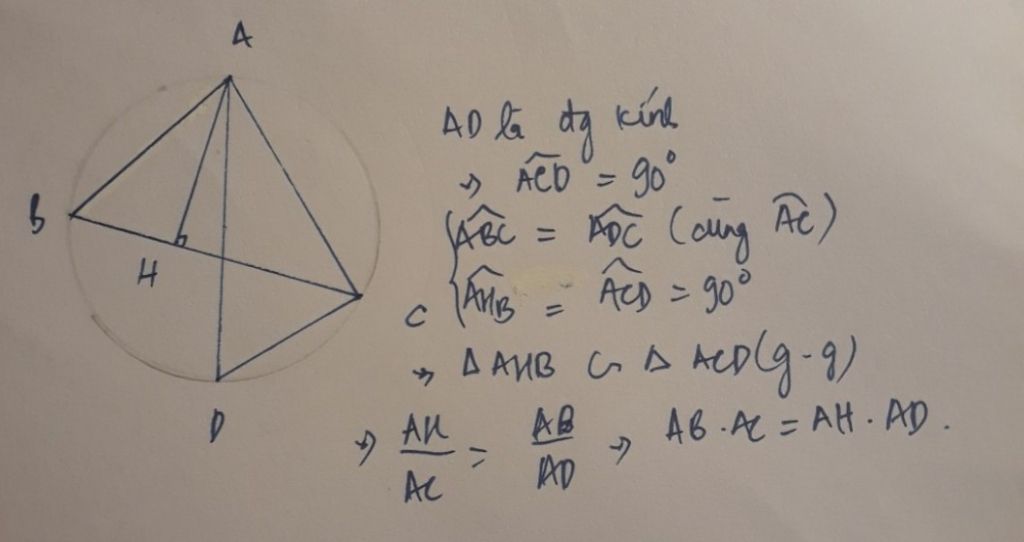 A
B
H
C
D
AD là đg kính
→ \widehat{ACD} = 90°
{ \widehat{ABC} = \widehat{ADC} (cùng \widehat{AC})
{ \widehat{AHB} = \widehat{ACD} = 90°
→ Δ AHB ∽ Δ ACD (g-g)
→ \frac{AH}{AC} = \frac{AB}{AD} → AB . AC = AH . AD .